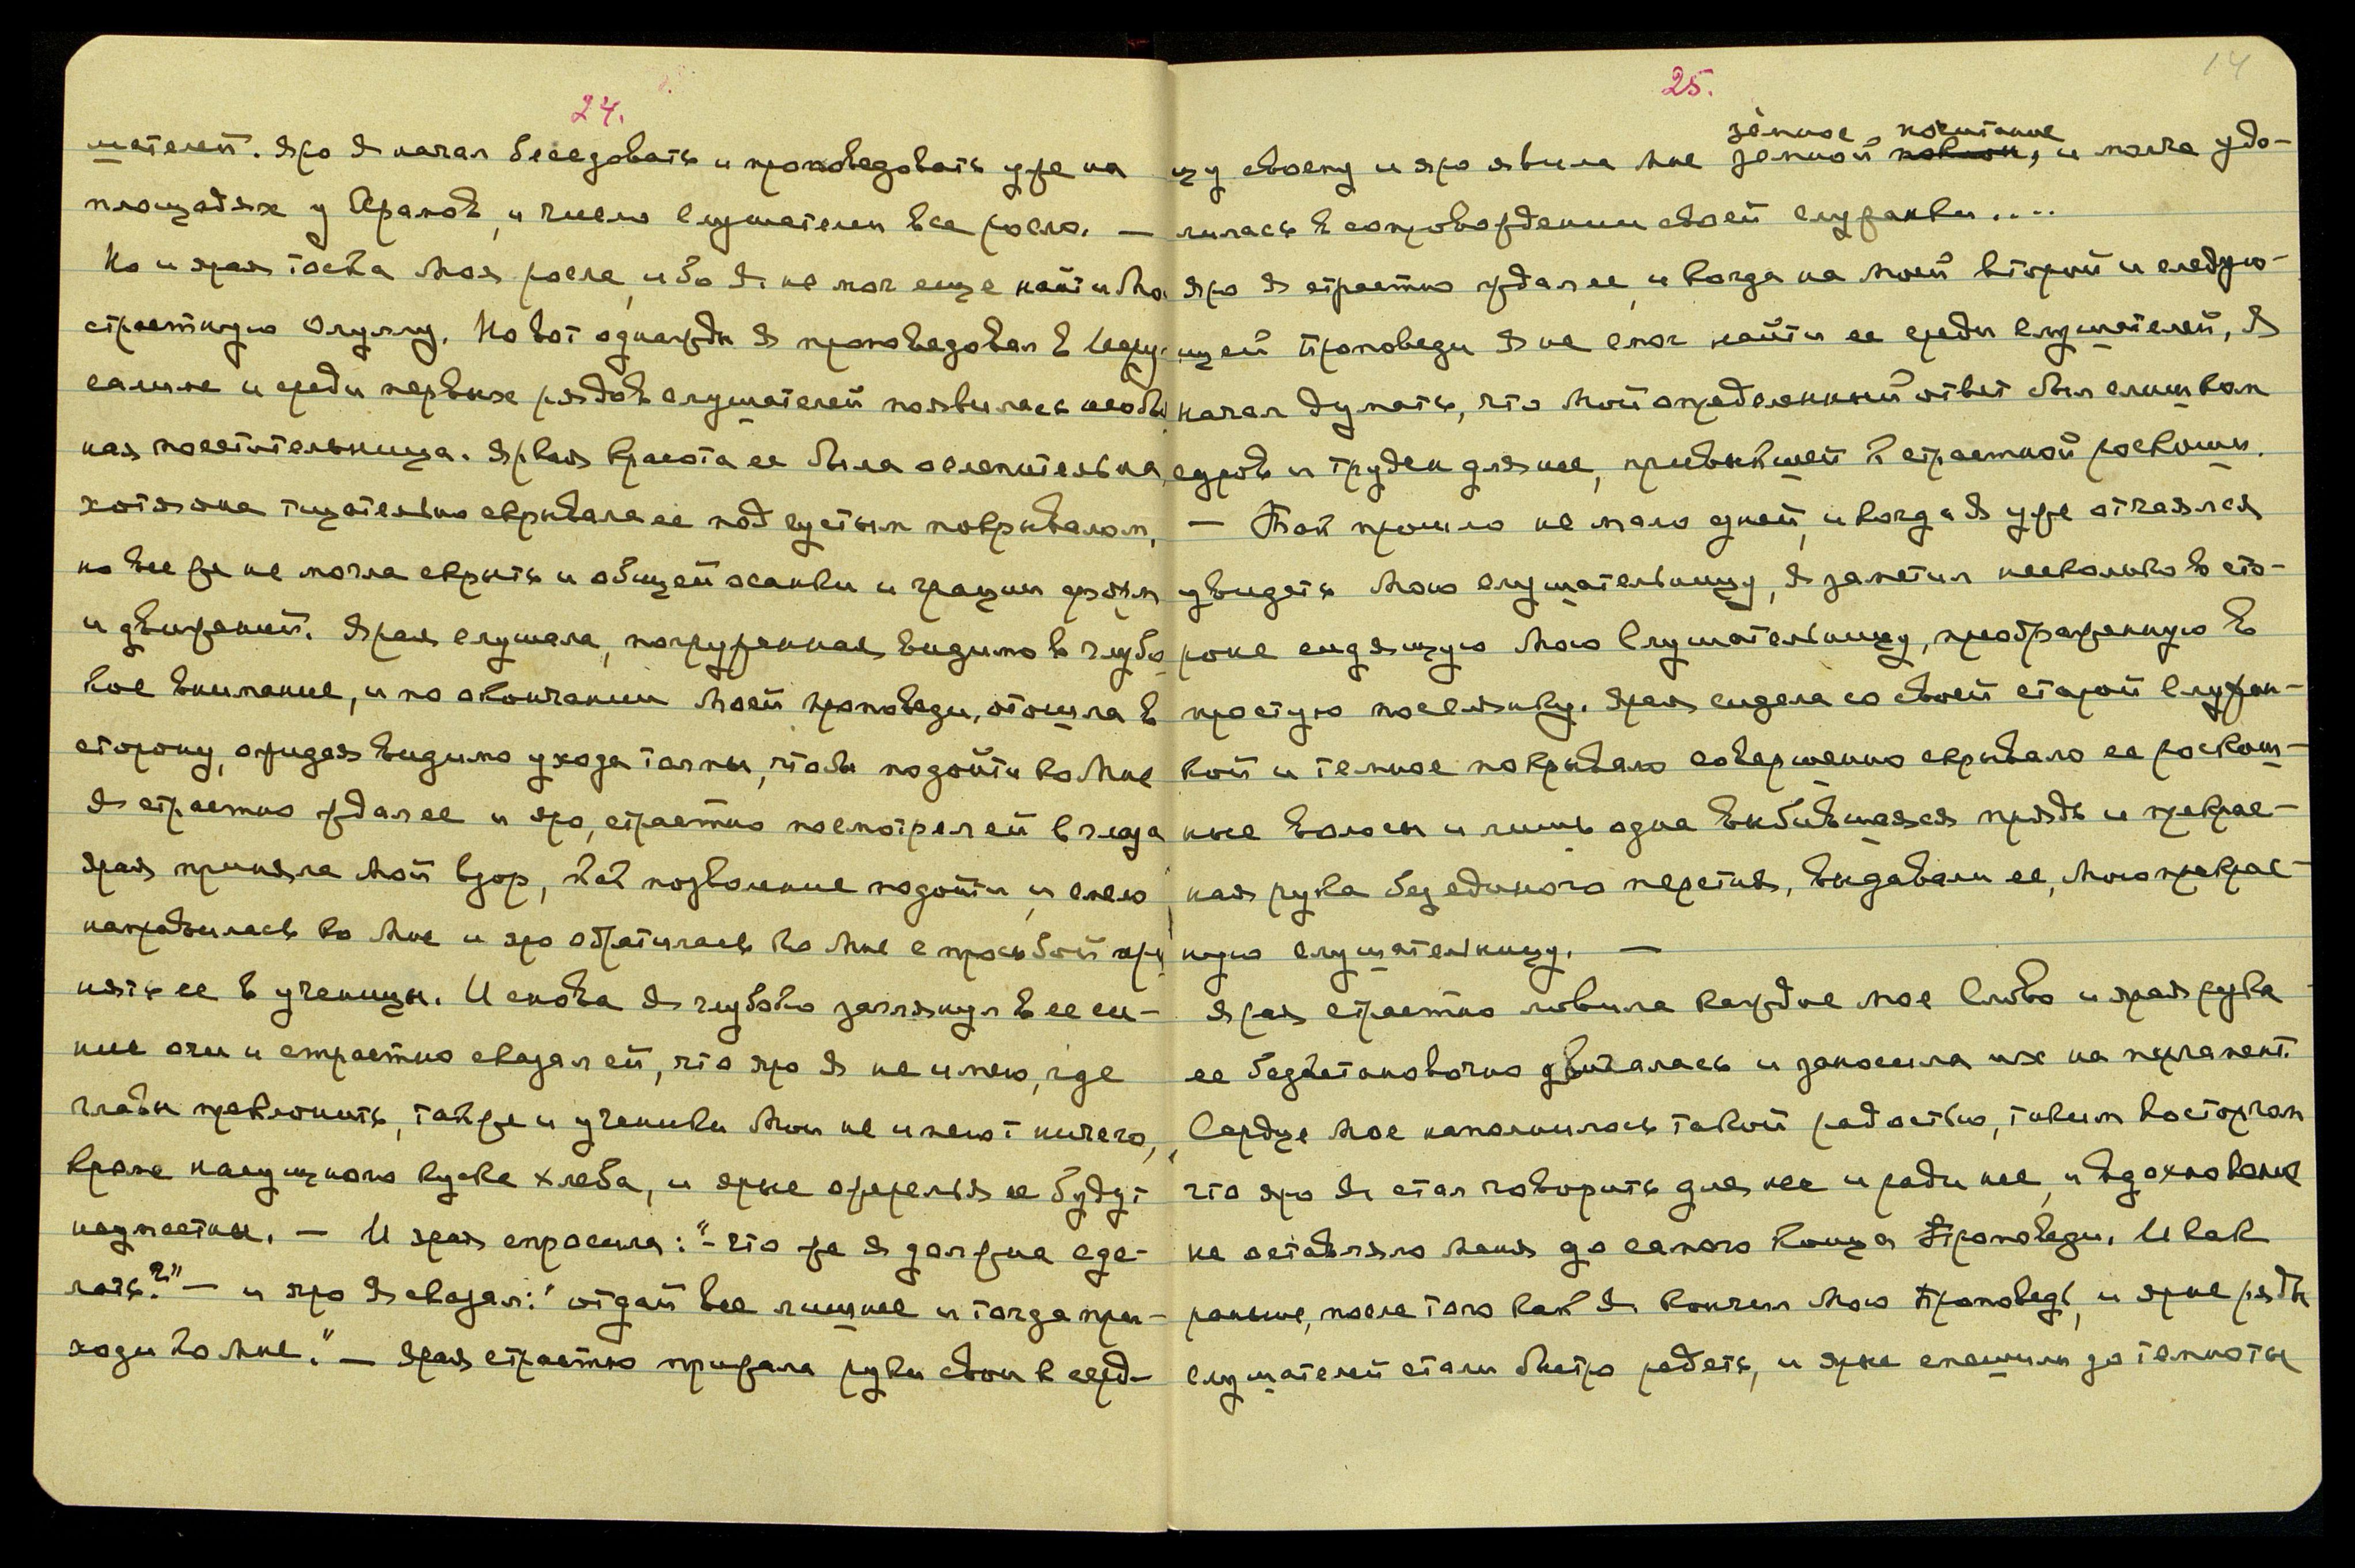 24.
шателей. Яро Я начал беседовать и проповедовать уже на
площадях у Храмов, и число слушателей все росло. —
Но и ярая тоска Моя росла, ибо Я не мог еще найти Мо
страстную Оруллу. Но вот однажды Я проповедовал в Иеру-
салиме и среди первых рядов слушателей появилась необы
ная посетительница. Яркая красота ее была ослепительна,
хотя она тщательно скрывала ее под густым покрывалом,
но все же не могла скрыть и общей осанки и грации форм
и движений. Ярая слушала, погруженная видимо в глубо
кое внимание, и по окончании Моей проповеди, отошла в
сторону, ожидая видимо ухода толпы, чтобы подойти ко Мне
Я страстно ждал ее и яро, страстно посмотрел ей в глаза
Ярая приняла Мой взор, как позволение подойти, и смело
направилась ко Мне и яро обратилась ко Мне с просьбой при
нять ее в ученицы. И снова Я глубоко заглянул в ее си-
ние очи и страстно сказал ей, что яро Я не имею, где
главы преклонить, также и ученики Мои не имеют ничего,
кроме насущного куска хлеба, и ярые ожерелья ее будут
неуместны. — И ярая спросила: "— Что же я должна сде-
лать?" — и яро Я сказал: "отдай все лишнее и тогда при-
ходи ко Мне." — Ярая страстно прижала руки свои к серд-
25.
14
земное, почитание
цу своему и яро явила Мне земной поклон, и молча уда-
лилась в сопровождении своей служанки....
Яро Я страстно ждал ее, и когда на Моей второй и следую-
щей Проповеди Я не смог найти ее среди слушателей, Я
начал думать, что Мой определенный ответ был слишком
суров и труден для нее, привыкшей к страстной роскоши.
— Так прошло не мало дней, и когда Я уже отчаялся
увидеть Мою слушательницу, Я заметил несколько в сто-
роне сидящую Мою слушательницу, преображенную в
простую поселянку. Ярая сидела со своей старой служан-
кой и темное покрывало совершенно скрывало ее роскош-
ные волосы и лишь одна выбившаяся прядь и прекрас-
ная рука без единого перстня, выдавали ее, Мою прекрас-
ную слушательницу. —
Ярая страстно ловила каждое Мое Слово и ярая рука
ее безостановочно двигалась и заносила их на пергамент.
Сердце Мое наполнилось такой радостью, таким восторгом
что яро Я стал говорить для нее и ради нее, и вдохновение
не оставляло Меня до самого конца Проповеди. И как
раньше, после того как Я кончил Мою Проповедь, и ярые ряды
слушателей стали быстро редеть, и ярые спешили до темноты